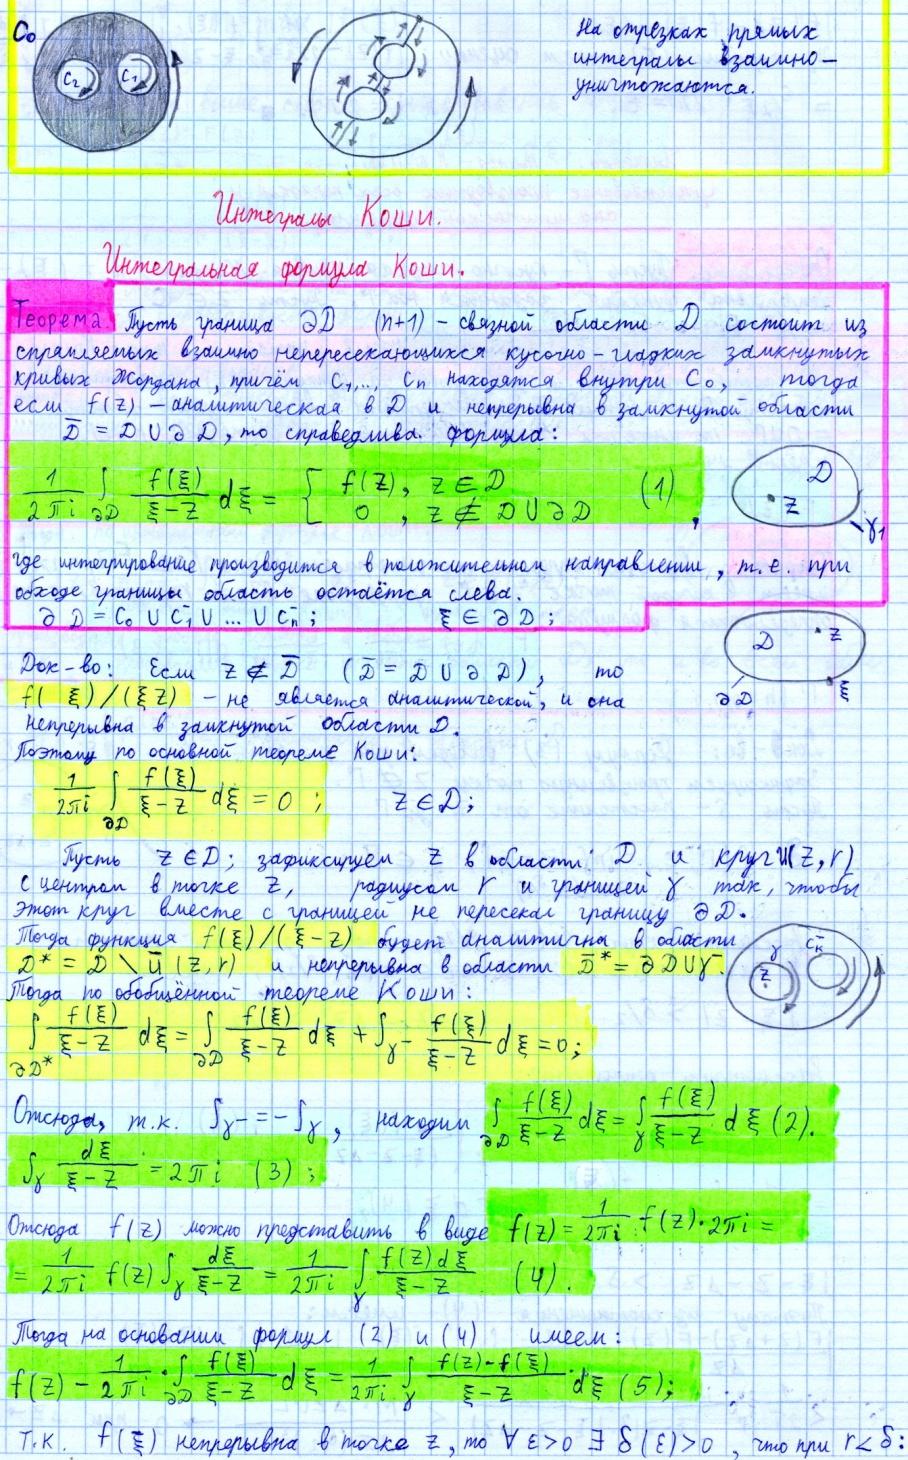 C₀
C₂ C₁
На отрезках прямых
интегралы взаимно-
уничтожаются.
Интегралы Коши.
Интегральная формула Коши.
Теорема. Пусть граница ∂D (n+1) – связной области D состоит из
спрямляемых взаимно непересекающихся кусочно-гладких замкнутых
кривых Жордана, причём C₁,..., Cn находятся внутри C₀, тогда
если f(z) – аналитическая в D и непрерывна в замкнутой области
D̄ = D ∪ ∂D, то справедлива формула:
1/2πi ∫_∂D f(ξ)/(ξ-z) dξ = { f(z), z ∈ D ; 0, z ∉ D ∪ ∂D (1),
D
z
γ₁
где интегрирование производится в положительном направлении, т.е. при
обходе границы область остаётся слева.
∂D = C₀ ∪ C₁⁻ ∪ ... ∪ Cn⁻; ξ ∈ ∂D;
D z
∂D ξ
Док-во: Если z ∉ D̄ (D̄ = D ∪ ∂D), то
f( ξ)/(ξ z) – не является аналитической, и она
непрерывна в замкнутой области D.
Поэтому по основной теореме Коши:
1/2πi ∫_∂D f(ξ)/(ξ-z) dξ = 0; z ∈ D;
Пусть z ∈ D; зафиксируем z в области D и круг U(z,r)
с центром в точке z, радиусом r и границей γ так, чтобы
этот круг вместе с границей не пересекал границу ∂D.
Тогда функция f(ξ)/(ξ-z) будет аналитична в области
D* = D \ Ū(z,r) и непрерывна в области D̄* = ∂D ∪ γ.
γ Cn⁻
z
Тогда по обобщённой теореме Коши:
∫_∂D* f(ξ)/(ξ-z) dξ = ∫_∂D f(ξ)/(ξ-z) dξ + ∫_γ⁻ f(ξ)/(ξ-z) dξ = 0;
Отсюда, т.к. ∫γ⁻ = -∫γ, находим ∫_∂D f(ξ)/(ξ-z) dξ = ∫_γ f(ξ)/(ξ-z) dξ (2).
∫_γ dξ/(ξ-z) = 2πi (3);
Отсюда f(z) можно представить в виде f(z) = 1/2πi f(z)·2πi =
= 1/2πi f(z) ∫_γ dξ/(ξ-z) = 1/2πi ∫_γ f(z)dξ/(ξ-z) (4).
Тогда на основании формул (2) и (4) имеем:
f(z) - 1/2πi · ∫_∂D f(ξ)/(ξ-z) dξ = 1/2πi ∫_γ (f(z)-f(ξ))/(ξ-z) · dξ (5);
Т.к. f(ξ) непрерывна в точке z, то ∀ε>0 ∃ δ(ε)>0, что при r<δ: